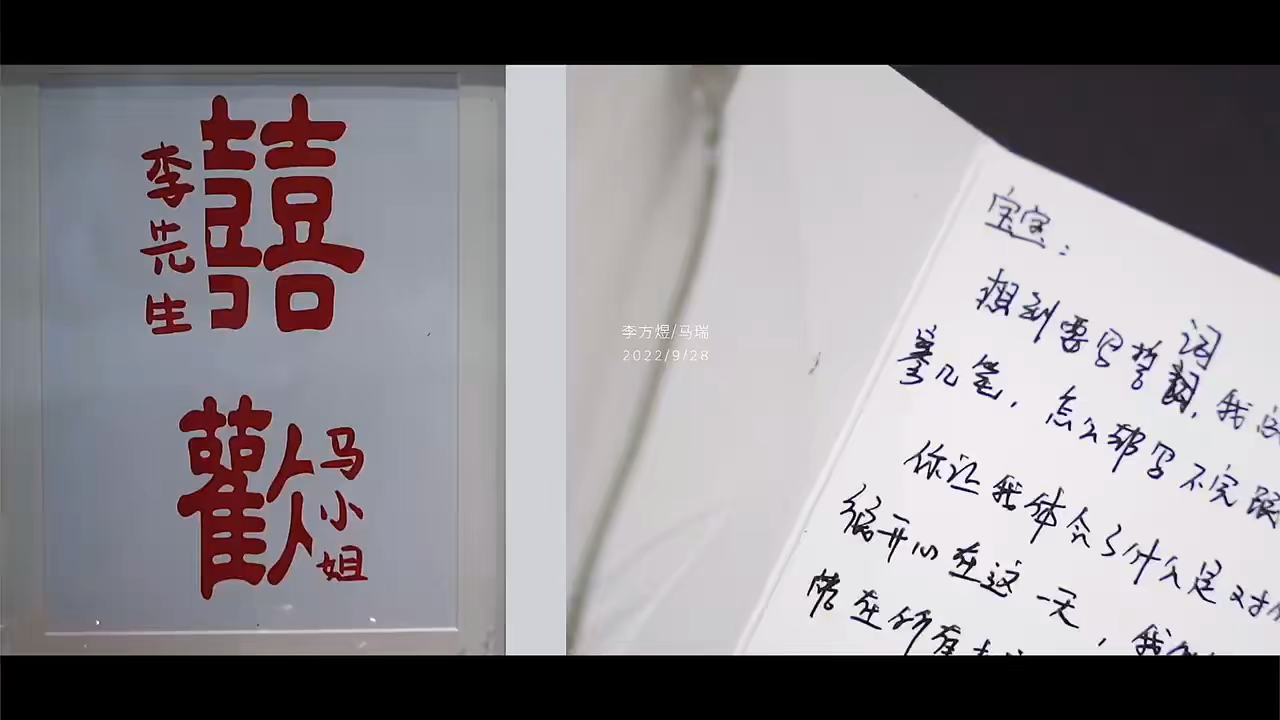 李先生
囍
歡
马小姐
李方煜/马瑞
2022/9/28
宝宝：
想到要写誓词，我
几笔，怎么都写不完
你让我体会了什么是对
开心在这一天，我
情在所有